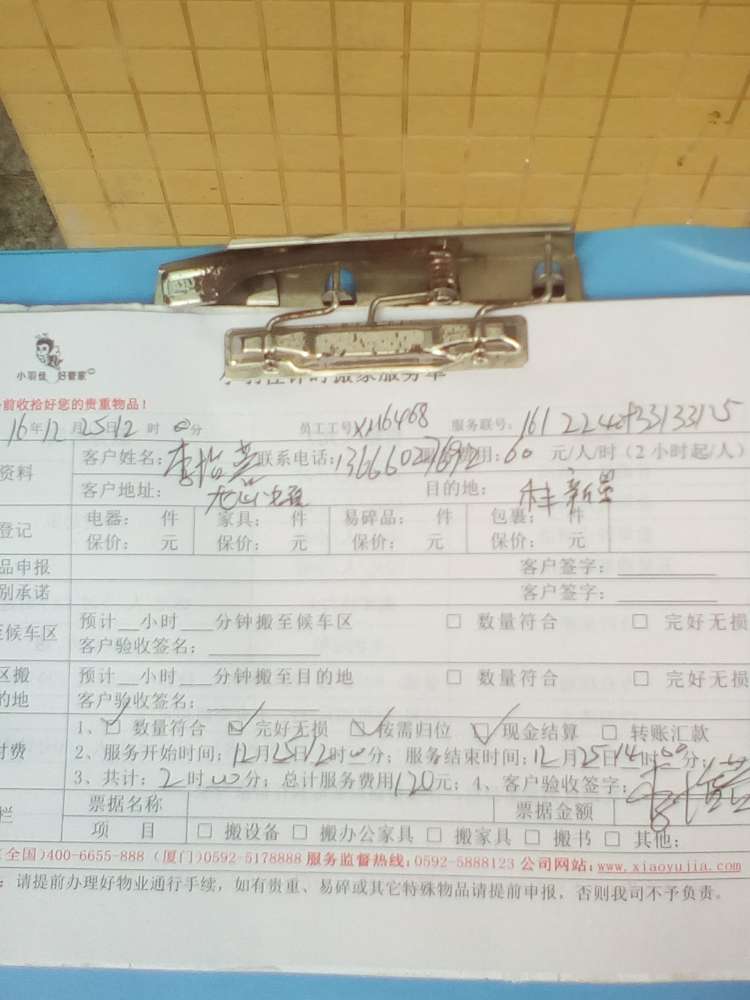 小羽佳 好管家
小羽佳计时搬家服务单
前收拾好您的贵重物品！
16年12月25日12时00分 员工工号 服务联号：
资料 客户姓名： 联系电话： 费用：60元/人/时（2小时起/人）
客户地址： 目的地：
登记 电器： 件 家具： 件 易碎品： 件 包裹： 件
保价： 元 保价： 元 保价： 元 保价： 元
品申报 客户签字：
别承诺 客户签字：
至候车区 预计__小时___分钟搬至候车区 □ 数量符合 □ 完好无损
客户验收签名：
区搬 预计__小时___分钟搬至目的地 □ 数量符合 □ 完好无损
的地 客户验收签名：
1、☑ 数量符合 ☑ 完好无损 ☑ 按需归位 ☑ 现金结算 □ 转账汇款
付费 2、服务开始时间：12月25日12时00分；服务结束时间：12月25日14时00分；
3、共计：2时00分；总计服务费用120元；4、客户验收签字：
栏 票据名称 票据金额
项 目 □ 搬设备 □ 搬办公家具 □ 搬家具 □ 搬书 □ 其他：
(全国)400-6655-888 (厦门)0592-5178888 服务监督热线：0592-5888123 公司网站：www.xiaoyujia.com
：请提前办理好物业通行手续，如有贵重、易碎或其它特殊物品请提前申报，否则我司不予负责。